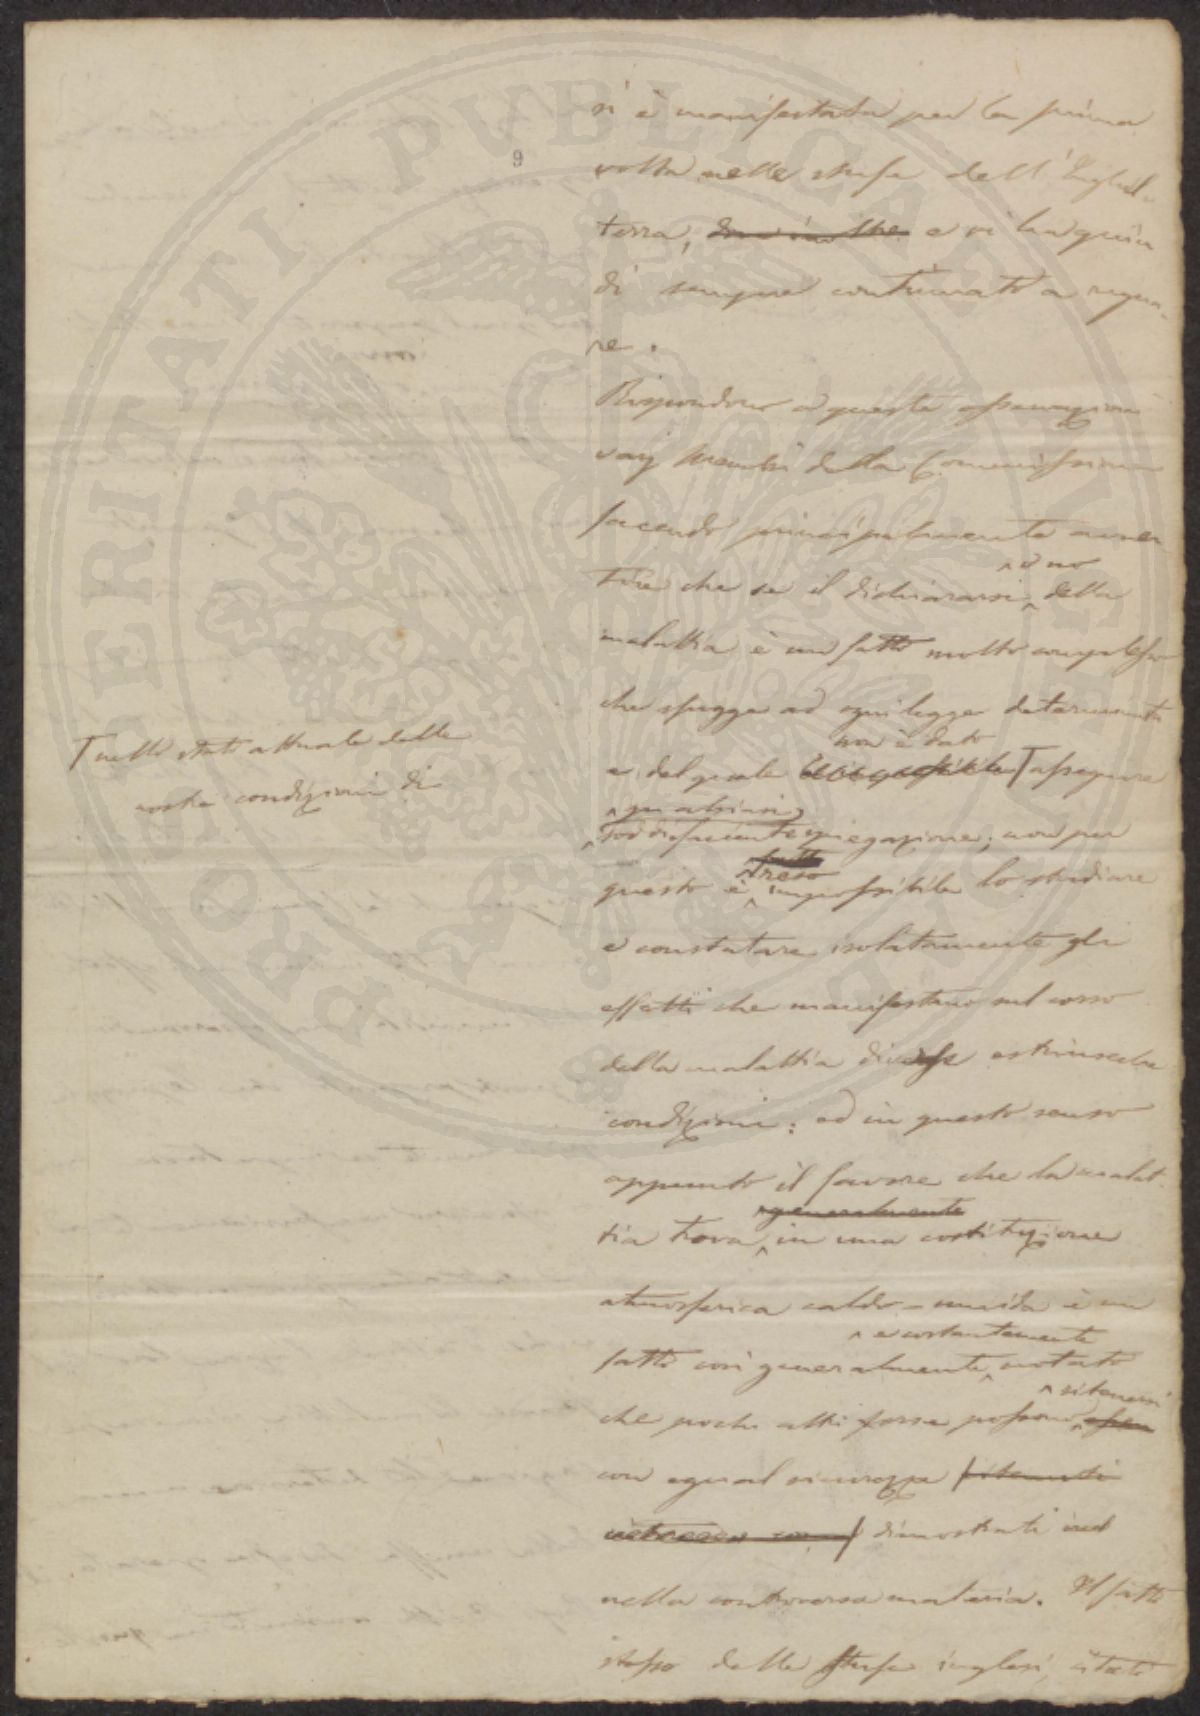 9
si è manifestata per la prima
volta nelle stufe dell'Inghil-
terra, e vi ha quin
di sempre continuato a regna-
re.
Rispondono a queste osservazioni
varj Membri della Commissione
facendo principalmente avver
tire che se il dichiararsi o no della
malattia è un fatto molto complesso
che sfugge ad ogni legge determinata
e del quale non è dato assegnare
qualsiasi
soddisfacente spiegazione; non per
questo è reso impossibile lo studiare
e constatare isolatamente gli
effetti che manifestano sul corso
della malattia diverse estrinseche
condizioni: ed in questo senso
appunto il favore che la malat-
tia trova generalmente in una costituzione
atmosferica caldo-umida è un
fatto così generalmente e costantemente notato
che pochi altri forse possono ritenersi
con egual sicurezza ritenuti
dimostrati
nella controversa materia. Il fatto
stesso delle stufe inglesi, citato
T nello stato attuale delle
nostre condizioni di
PROSPERITATI PUBLICAE